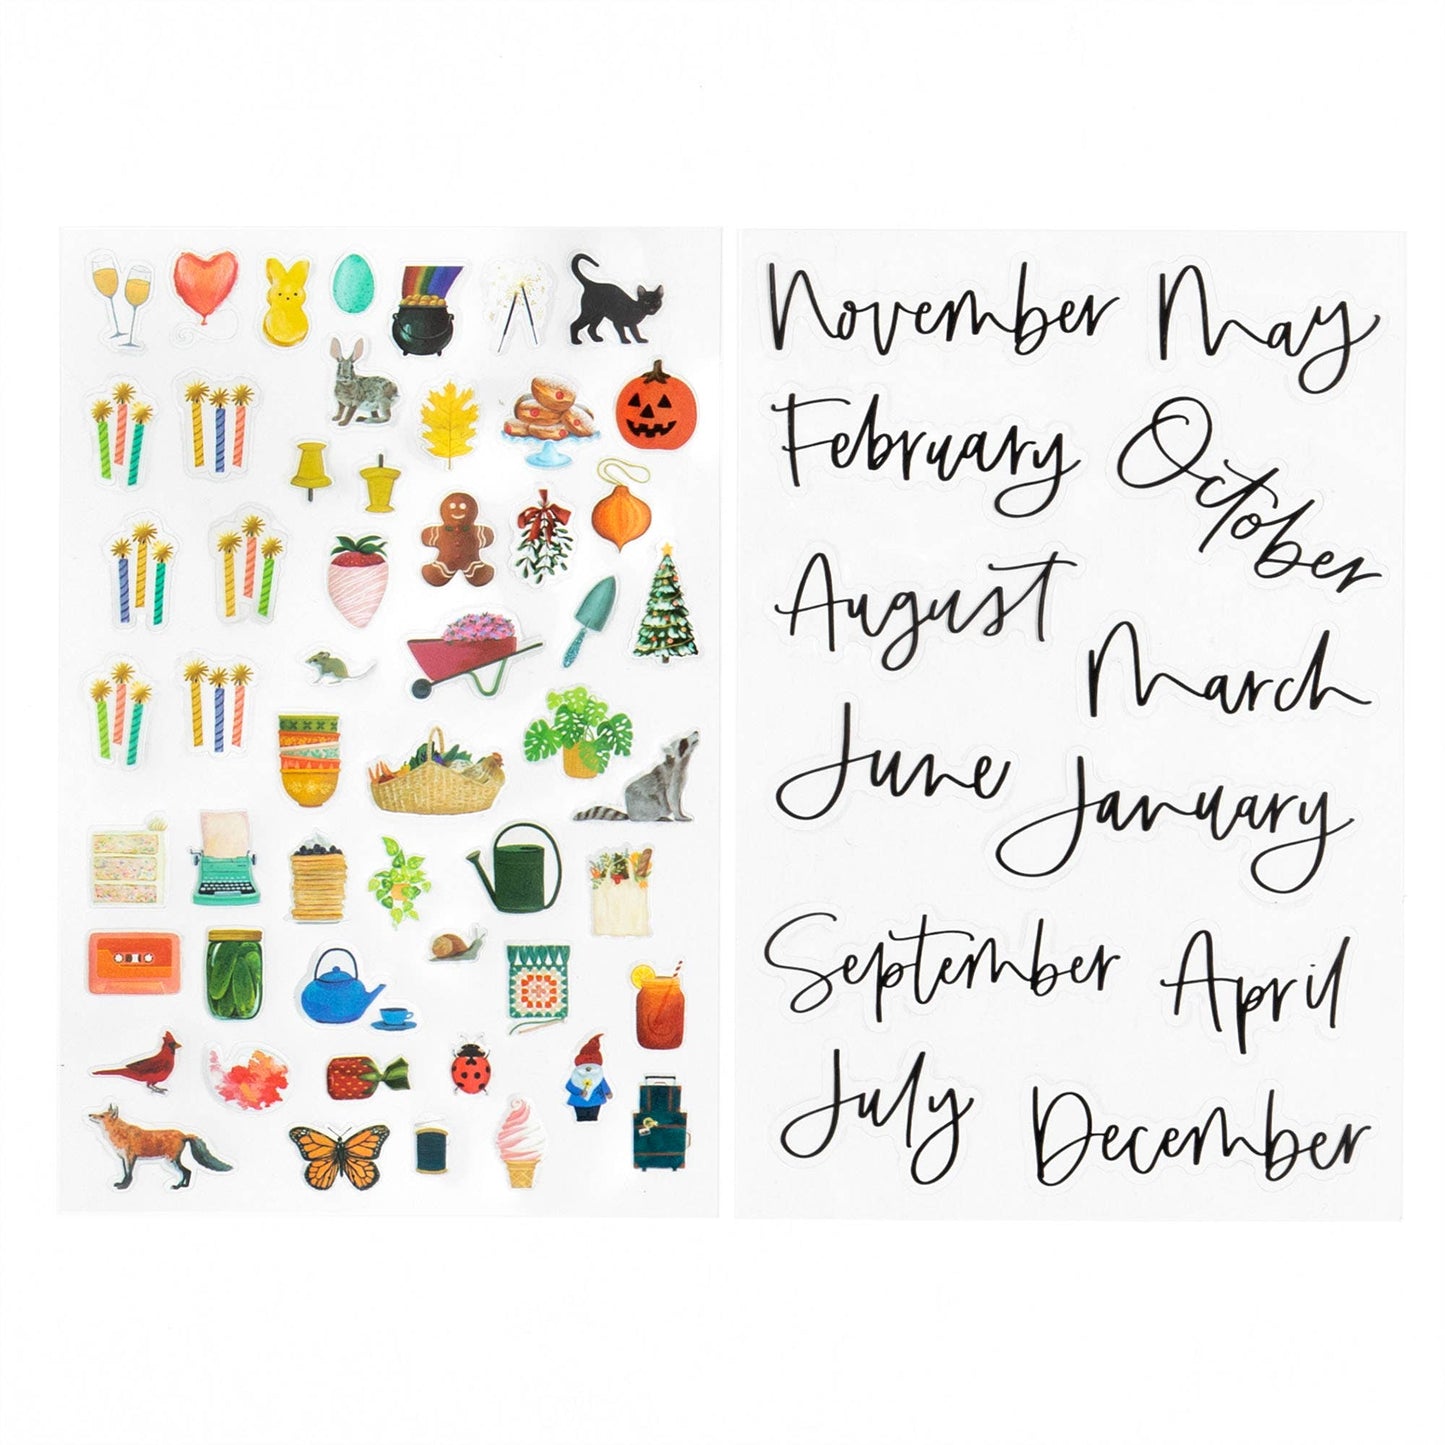 November
May
February
October
August
March
June
January
September
April
July
December